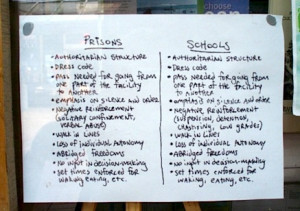 choose
PRISONS
• AUTHORITARIAN STRUCTURE
• DRESS CODE
• PASS NEEDED FOR GOING FROM
ONE PART OF THE FACILITY
TO ANOTHER
• EMPHASIS ON SILENCE AND ORDER
• NEGATIVE REINFORCEMENT
(SOLITARY CONFINEMENT,
VERBAL ABUSE)
• WALK IN LINES
• LOSS OF INDIVIDUAL AUTONOMY
• ABRIDGED FREEDOMS
• NO INPUT IN DECISION-MAKING
• SET TIMES ENFORCED FOR
WALKING, EATING, ETC.
SCHOOLS
• AUTHORITARIAN STRUCTURE
• DRESS CODE
• PASS NEEDED FOR GOING FROM
ONE PART OF THE FACILITY
TO ANOTHER
• EMPHASIS ON SILENCE AND ORDER
• NEGATIVE REINFORCEMENT
(SUSPENSION, DETENTION,
LOW GRADES)
• WALK IN LINES
• LOSS OF INDIVIDUAL AUTONOMY
• ABRIDGED FREEDOMS
• NO INPUT IN DECISION-MAKING
• SET TIMES ENFORCED FOR
WALKING, EATING, ETC.